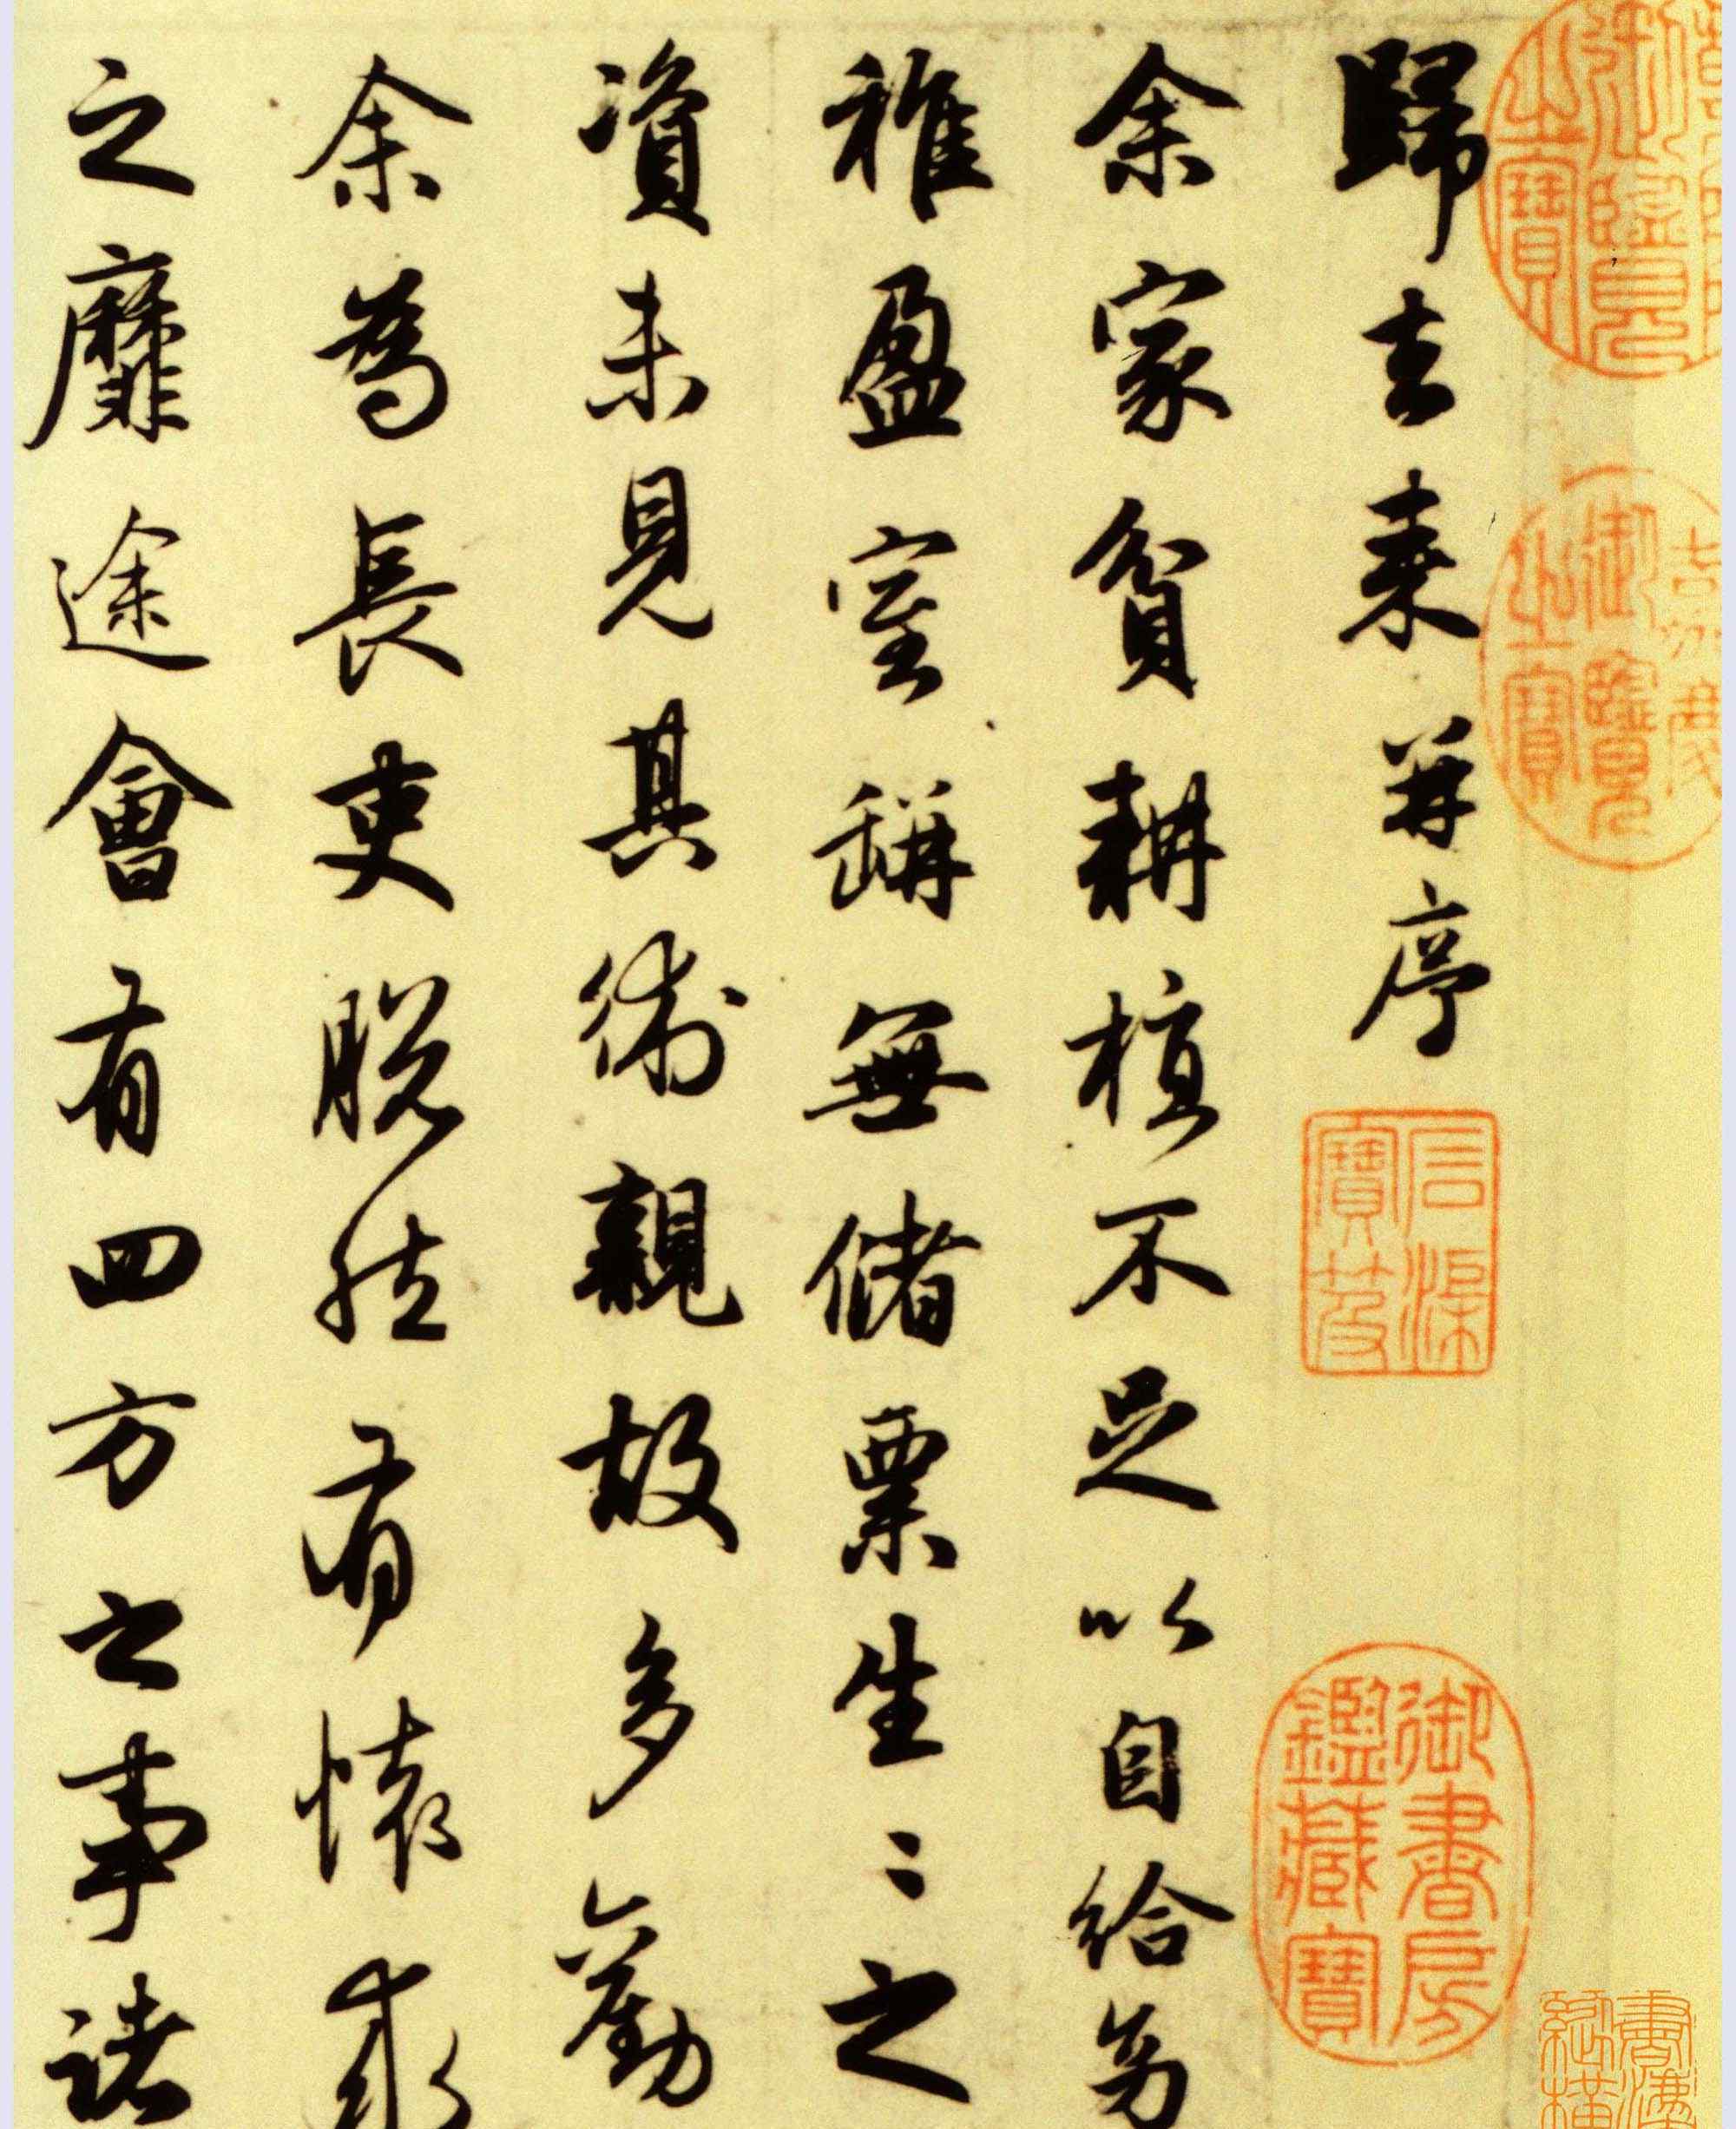 歸去來并序
余家貧耕植不足以自給幼
稚盈室缾無儲粟生〻之
資未見其術親故多勸
余為長吏脫然有懷求
之靡途會有四方之事諸
石渠寶笈
御書房鑑藏寶
嘉慶御覽之寶